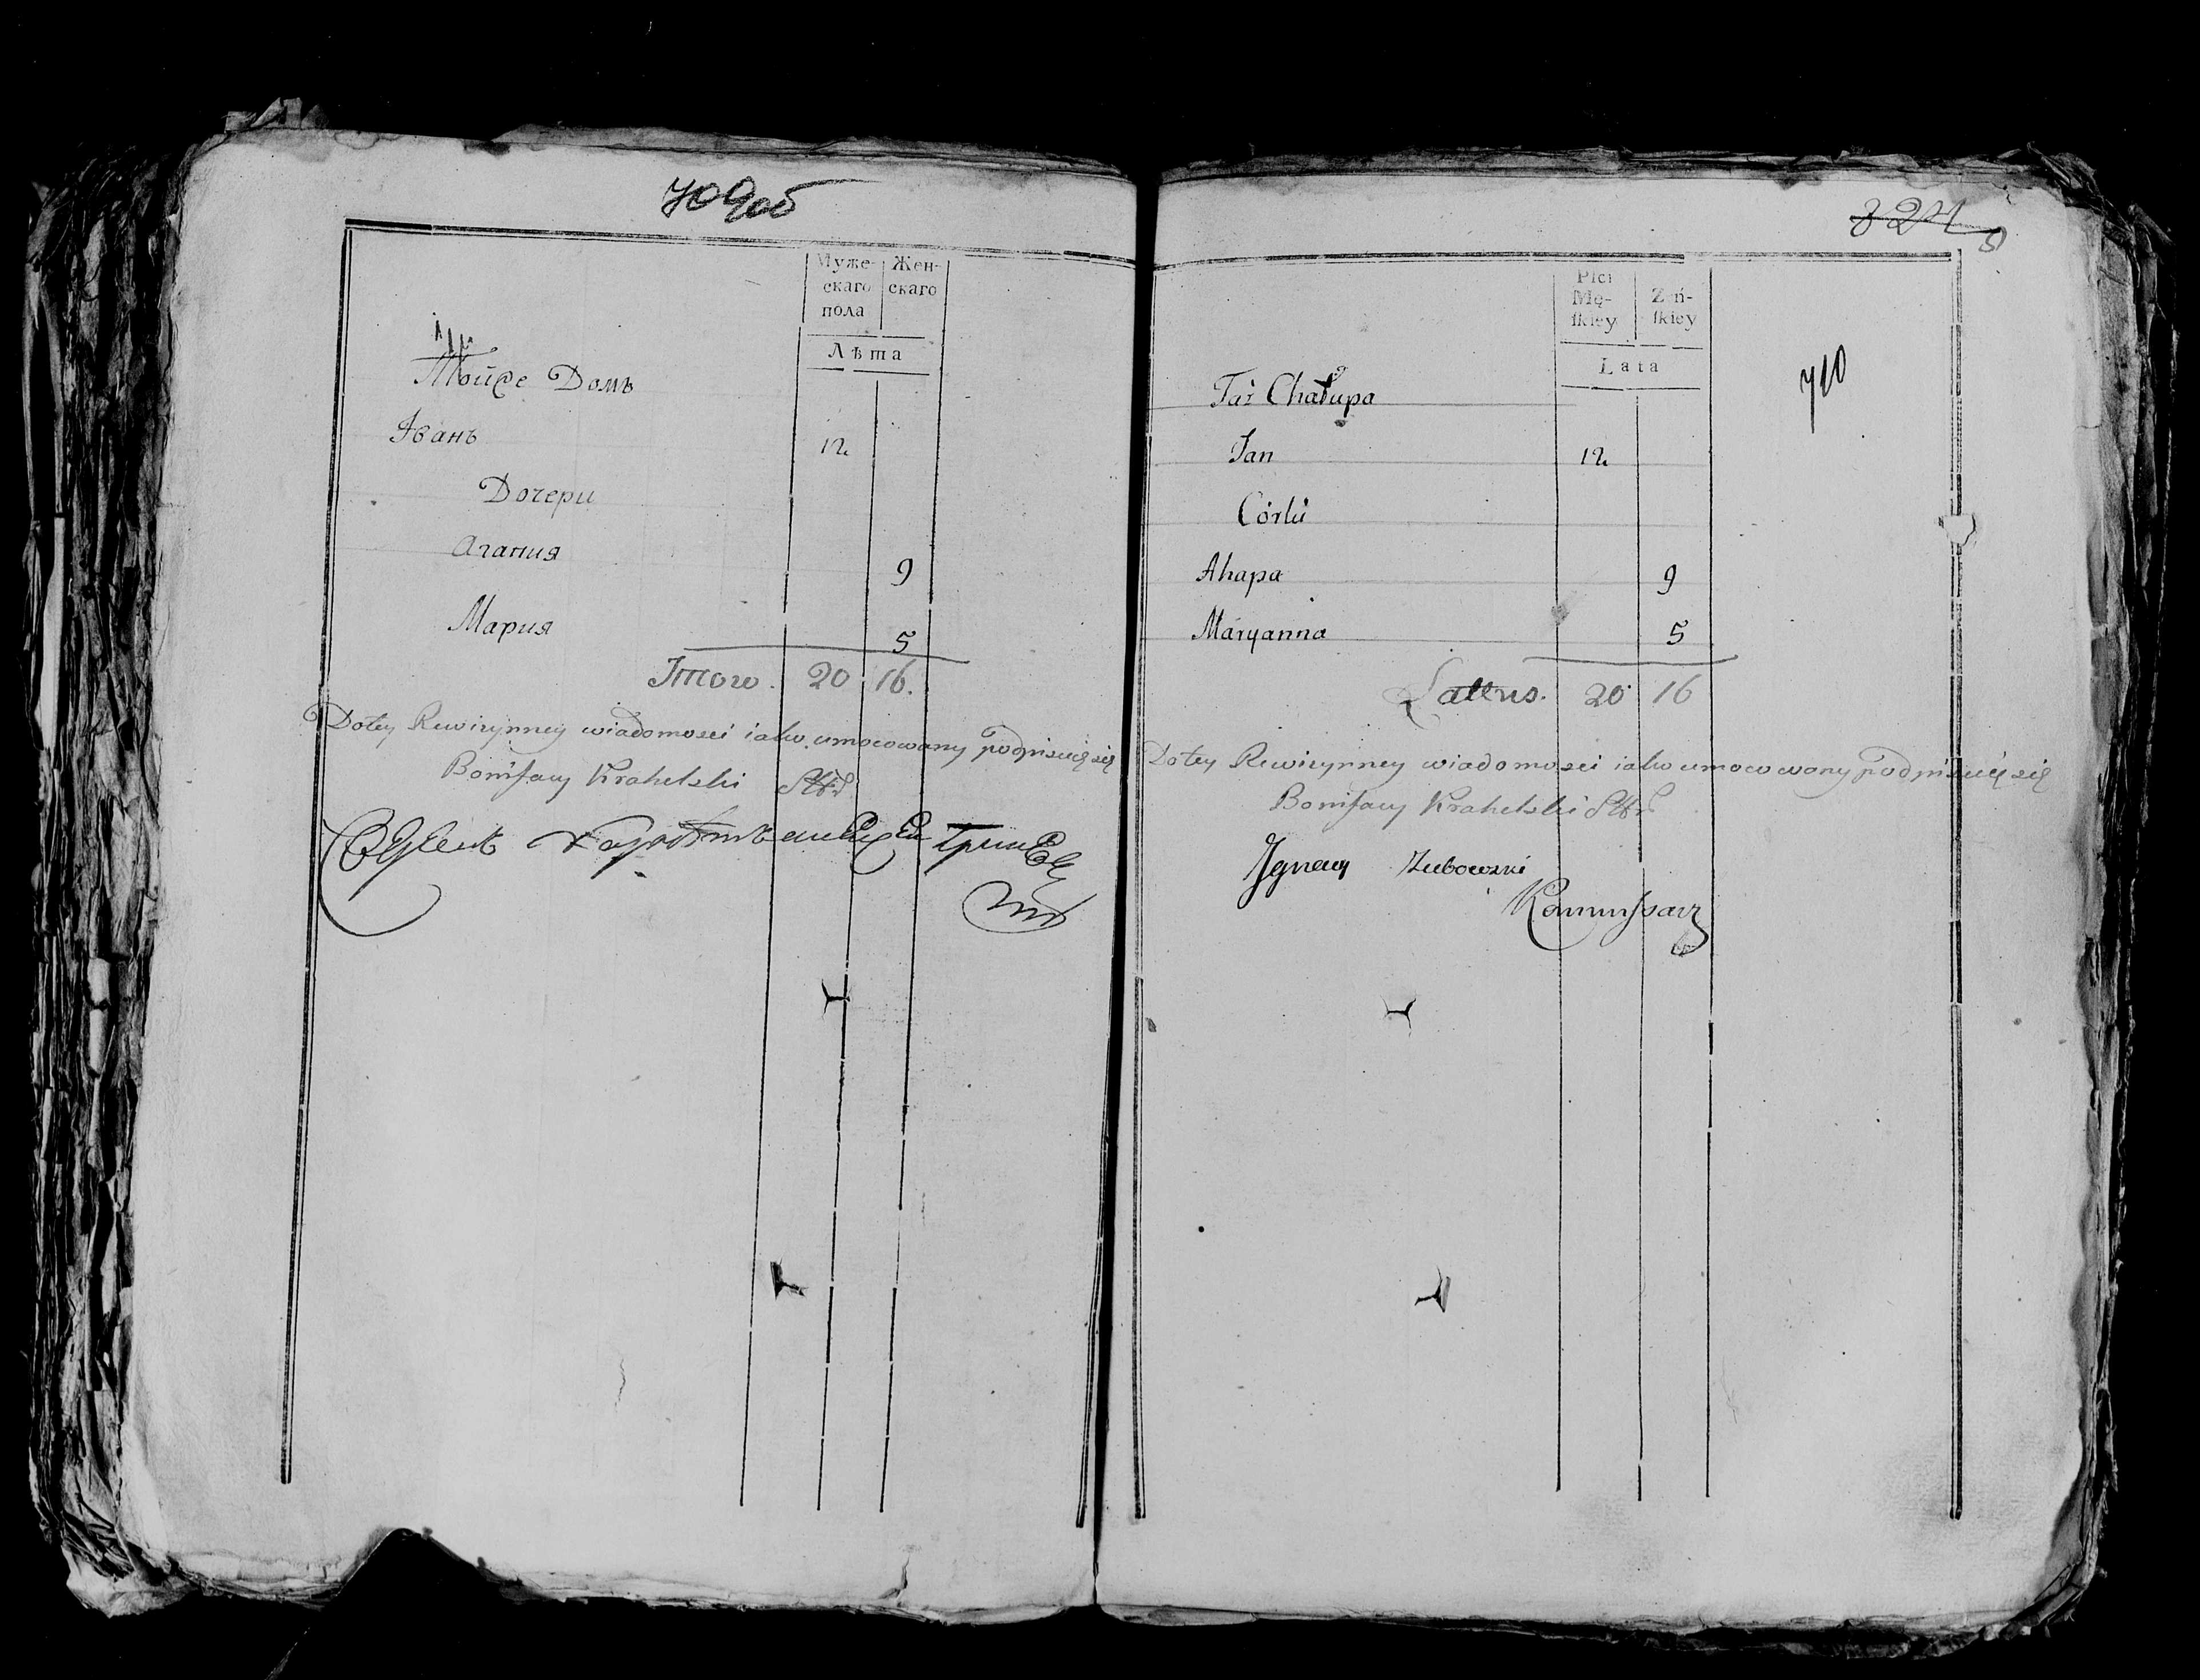 709об
Муже-
скаго
пола
Жен-
скаго
Лѣта
Домъ
Іванъ 12
Дочери
Агапия 9
Мария 5
Итого. 20 16.
Do tey Rewizynney wiadomosci iako umocowany podpisuię się
Bonifacy Krahelski
710
Płci
Mę-
ſkiey
Zeń-
ſkiey
Lata
Taż Chałupa
Jan 12
Córki
Ahapa 9
Maryanna 5
Latterus. 20 16
Do tey Rewizynney wiadomosci iako umocowany podpisuię się
Bonifacy Krahelski
Ignacy Zubowski
Kommissarz